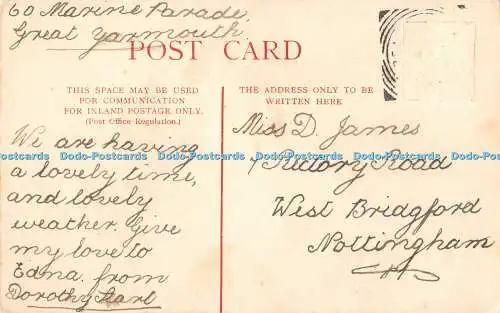 60 Marine Parade,
Great Yarmouth
POST CARD
THIS SPACE MAY BE USED
FOR COMMUNICATION
FOR INLAND POSTAGE ONLY.
(Post Office Regulation.)
We are having
a lovely time,
and lovely
weather. Give
my love to
Edna. from
Dorothy
THE ADDRESS ONLY TO BE
WRITTEN HERE
Miss D. James
Rectory Road
West Bridgford
Nottingham
Dodo-Postcards Dodo-Postcards Dodo-Postcards Dodo-Postcards Dodo-Postcards Dodo-Postcards